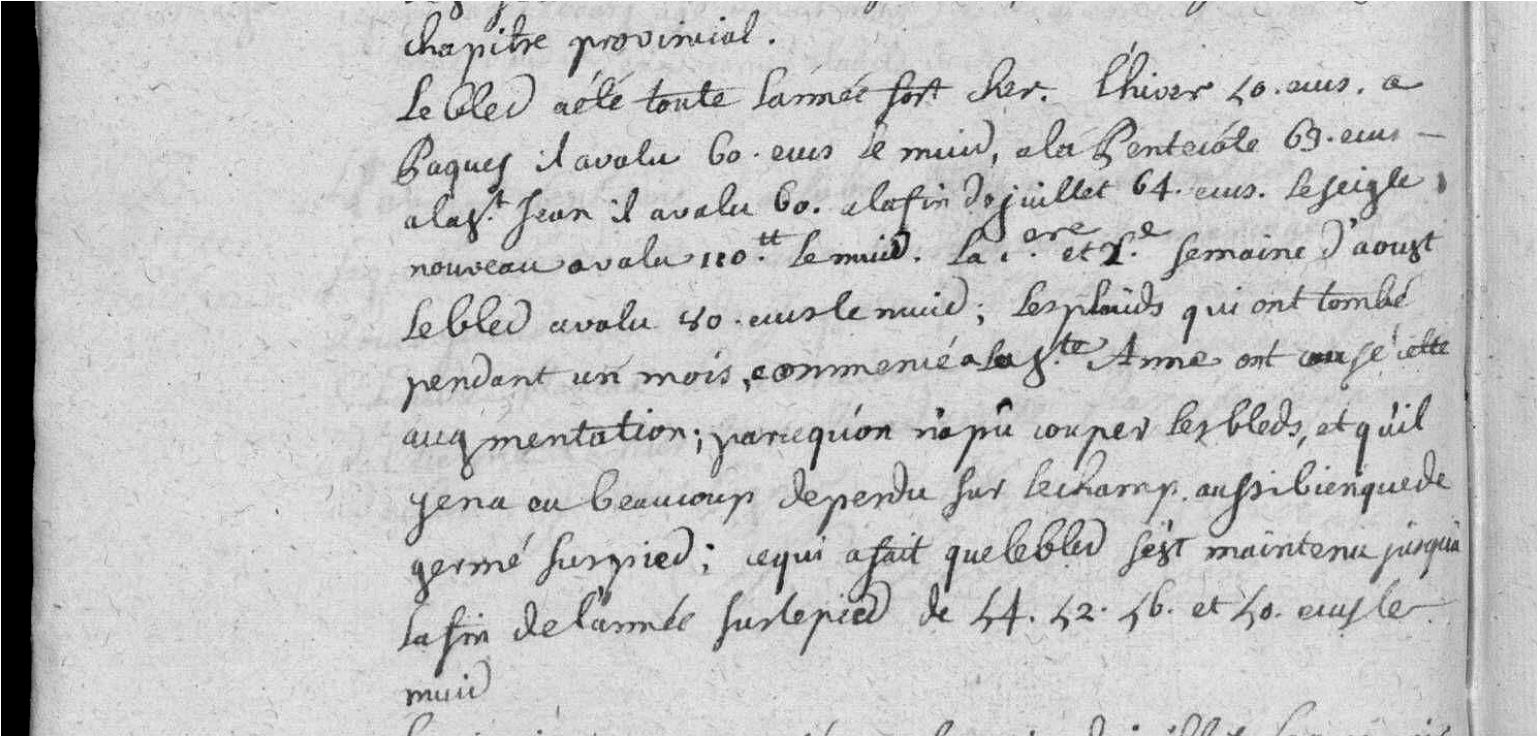 chapitre provincial.
Le bled a été toute l'année fort cher. l'hiver 50. ecus. a
Paques il a valu 60. ecus le muid, a la Pentecôte 69. ecus
a la St. Jean il a valu 60. a la fin de juillet 64. ecus. Le seigle
nouveau a valu 110.tt le muid. La 1.ere et 2.e semaine d'aoust
Le bled a valu 80. ecus le muid; Les pluids qui ont tombé
pendant un mois, commencé a la Ste. Anne ont causé cette
augmentation; parcequ'on n'a pû couper les bleds, et qu'il
y en a eu beaucoup de perdu sur le champ. aussi bien que de
germé sur pied; ce qui a fait que le bled s'est maintenu jusqu'a
la fin de l'année sur le pied de 54. 52. 56. et 50. ecus le
muid